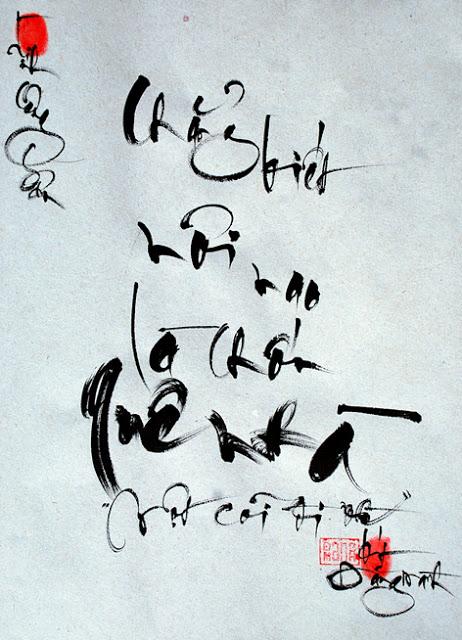 Chẳng biết
nơi nao
là chốn
quê nhà
"Một cõi đi về"